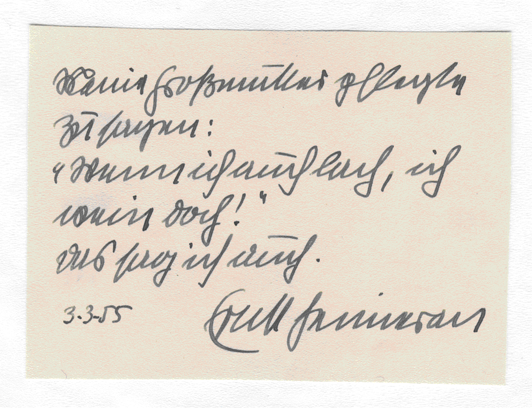 Meine Großmutter pflegte
zu sagen:
"Wenn ich auch lach, ich
wein doch!"
das sag ich auch.
3.3.55